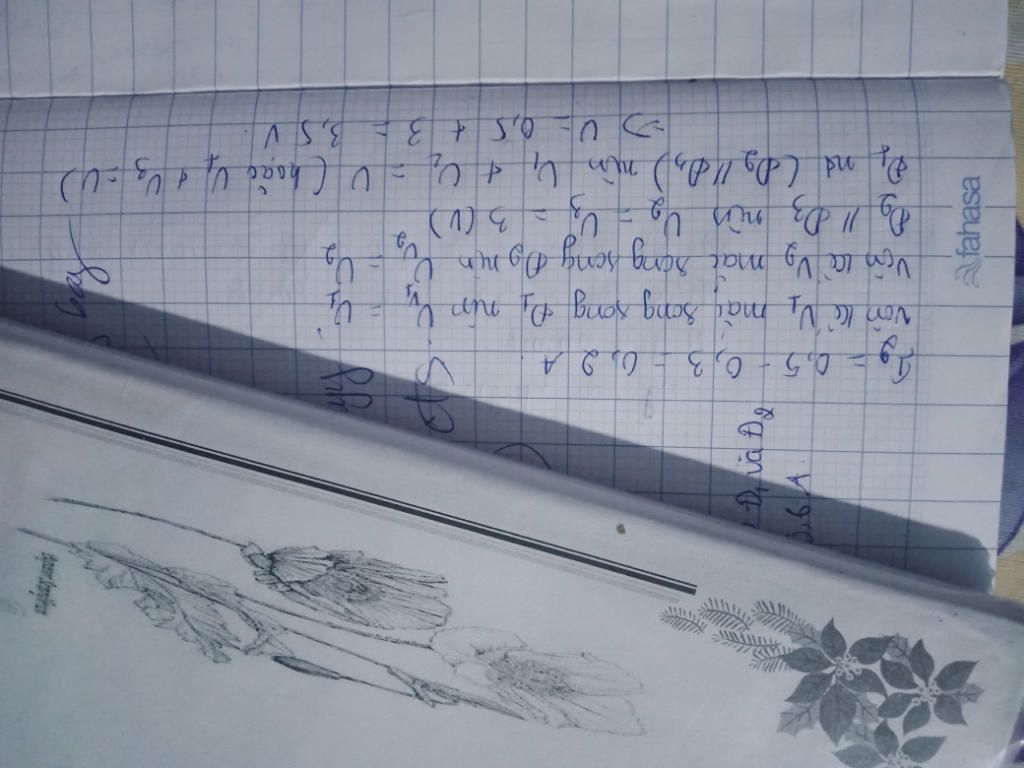 I₂ = 0,5 - 0,3 = 0,2 A.
Vôn kế V₁ mắc song song Đ₁ nên U_V₁ = U₁
Vôn kế V₂ mắc song song Đ₂ nên U_V₂ = U₂
Đ₂ // Đ₃ nên U₂ = U₃ = 3 (V)
Đ₁ nt (Đ₂ // Đ₃) nên U₁ + U₂ = U (hoặc U₁ + U₃ = U)
=> U = 0,5 + 3 = 3,5 V.
Đ₁ và Đ₂
A.
fahasa